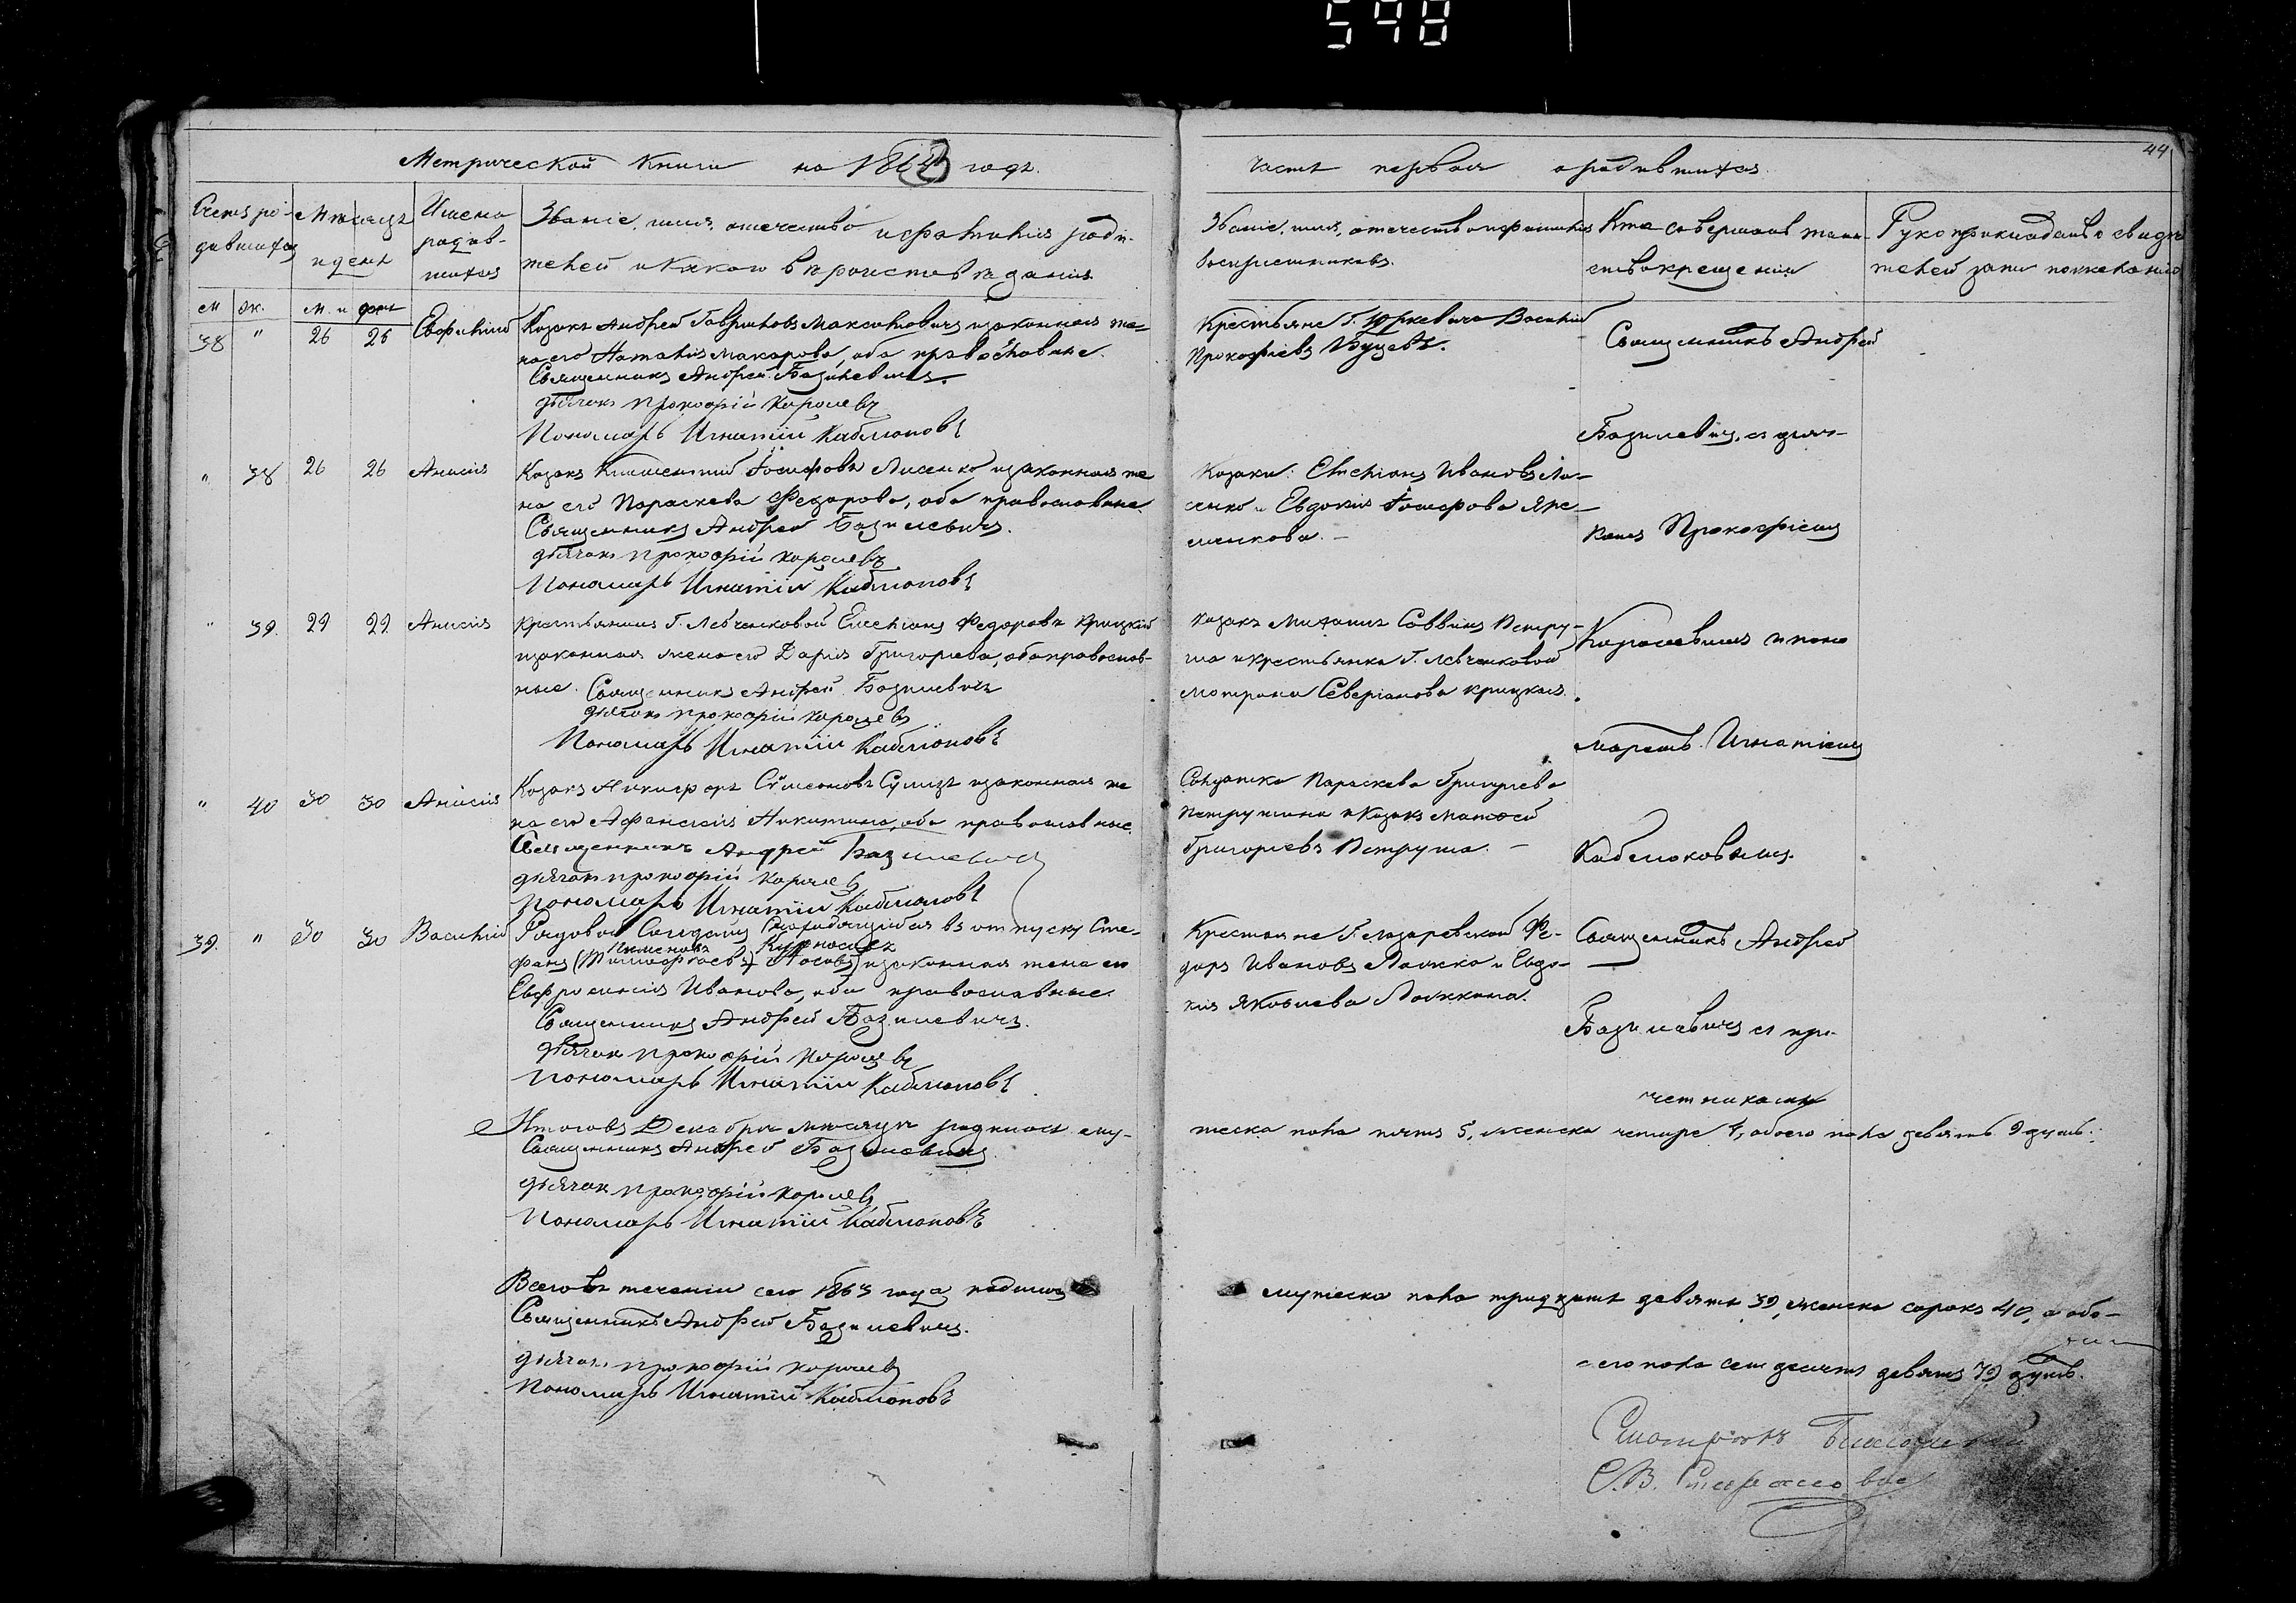 598
44
Метрической Книги на 1864 годъ.
Часть первая о родившихся.
Счетъ ро-
дившихся
Мѣсяцъ
и день
Имена
родив-
шихся
Званіе, имя, отечество и фамилія роди-
телей и какого вѣроисповѣданія
Званіе, имя, отечество и фамилія
воспріемниковъ.
Кто совершалъ таин-
ство крещенія
Рукоприкладство свидѣ-
телей записи по желанію
М Ж. М. и
38 " 26 26 Евфимій
Козакъ Андрей Гавриловъ Максимовичъ и законная же-
на его Наталія Макарова, оба православные.
Священникъ Андрей Базилевичъ.
дьячокъ Прокофій
Пономарь Игнатій
Крестьяне Г. Юркевича Василій
Прокофіевъ
Священникъ Андрей
Базилевичъ, съ дьяч-
" 38 26 26 Анисія
Козакъ Іосифовъ Лисенко и законная же
на его Параскева Федорова, оба православные.
Священникъ Андрей Базилевичъ.
дьячокъ Прокофій
Пономарь Игнатій
Козаки: Емеліянъ Ивановъ Ли-
сенко и Евдокія Іосифова Яре-
менкова. -
комъ Прокофіемъ
" 39. 29 29 Анисія
Крестьянинъ Г. Левченковой Емеліянъ Федоровъ Крицкій
и законная жена его Дарія Григорьева, оба православ-
ные. Священникъ Андрей Базилевичъ
дьячокъ Прокофій
Пономарь Игнатій
козакъ Михаилъ Саввинъ Петру-
ша и крестьянка Г. Левченковой
Мотрона Северіанова Крицкая.
и поно
маремъ Игнатіемъ
" 40 30 30 Анисія
Козакъ Никифоръ Симеоновъ и законная же
на его Афанасія Никитина, оба православные.
Священникъ Андрей Базилевичъ
дьячокъ Прокофій
Пономарь Игнатій
Солдатка Параскева Григорьева
Петрушина и Козакъ Матфей
Григорьевъ Петруша. -
39. " 30 30 Василій
Рядовой Солдатъ въ отпуску Сте-
фанъ и законная жена его
Евфросинія Иванова, оба православные.
Священникъ Андрей Базилевичъ.
дьячокъ Прокофій
Пономарь Игнатій
Крестьяне Г. Лазаревской Фе-
доръ Ивановъ и Евдо-
кія Яковлева
Священникъ Андрей
Базилевичъ съ при-
четниками
Итого въ Декабрѣ мѣсяцѣ родилось му-
жеска пола пять 5, женска четыре 4, обоего пола девять 9 душъ.
Священникъ Андрей Базилевичъ
дьячокъ Прокофій
Пономарь Игнатій
Всего въ теченіи сего 1863 года родилось
мужеска пола тридцать девять 39, женска сорокъ 40, а обо-
его пола семдесятъ девять 79 душъ.
Священникъ Андрей Базилевичъ.
дьячокъ Прокофій
Пономарь Игнатій